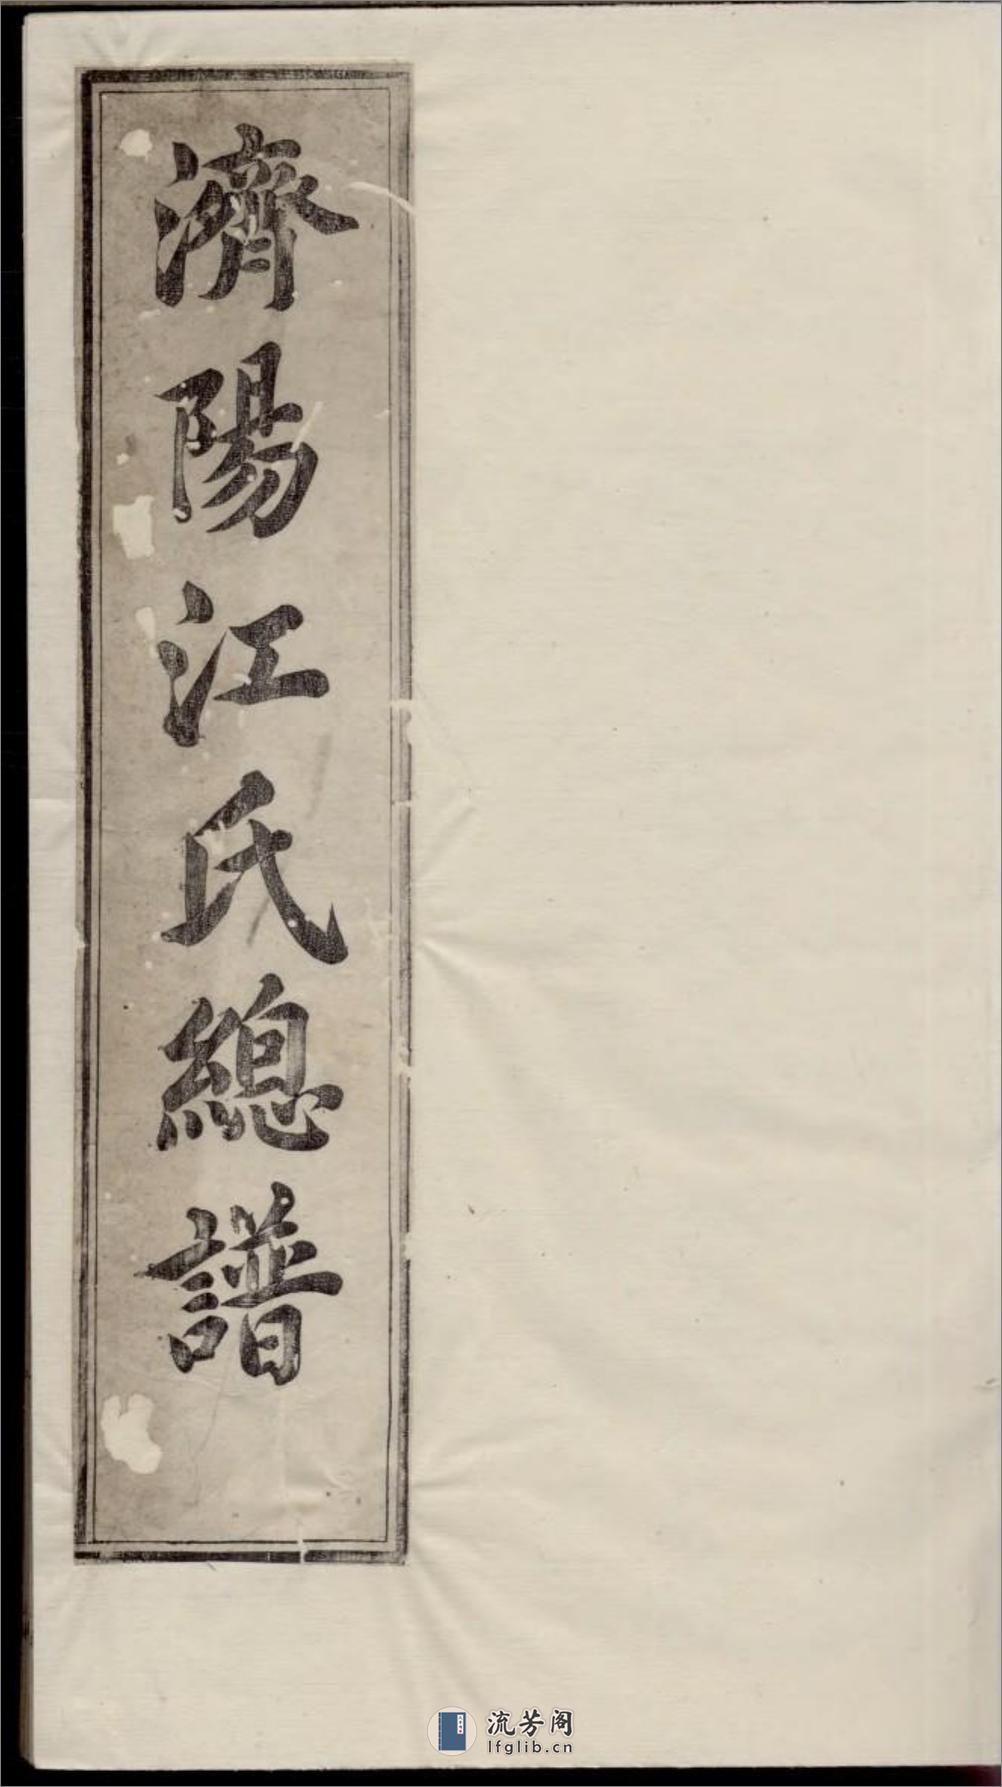 濟陽江氏總譜
流芳阁
lfglib.cn